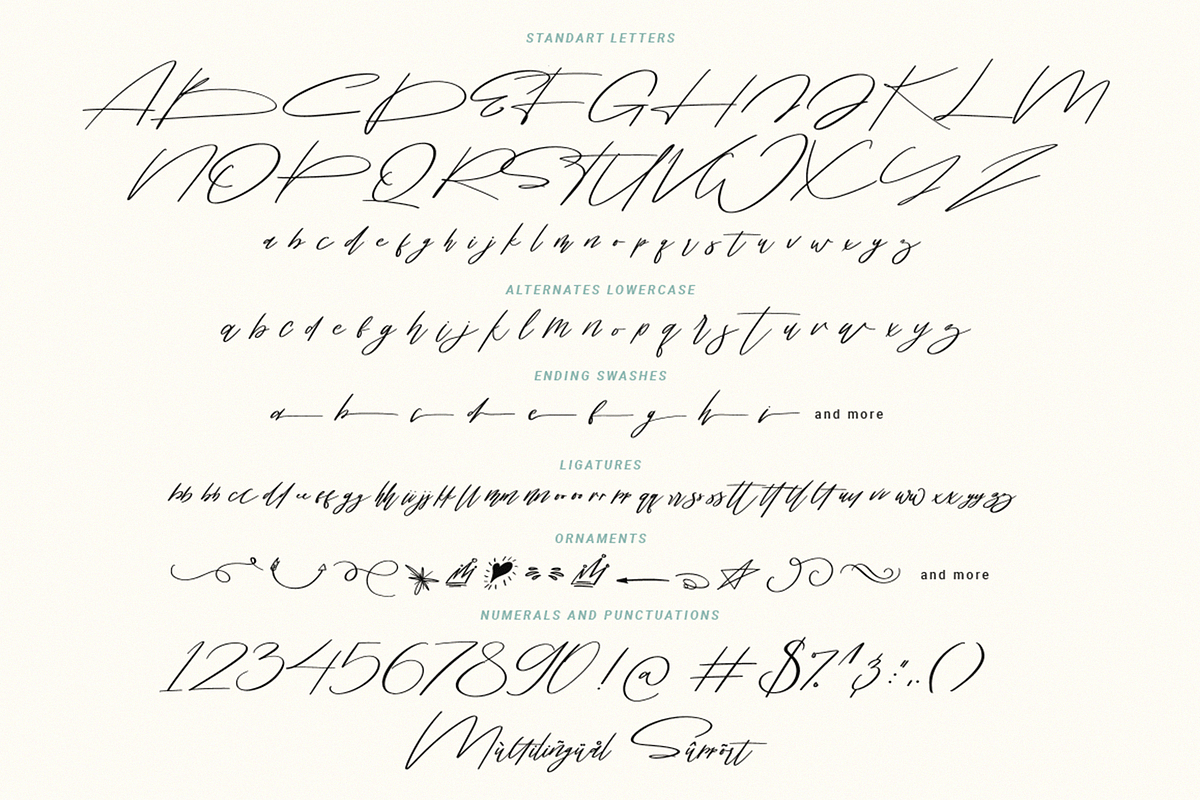 STANDART LETTERS
A B C D E F G H I J K L M
N O P Q R S T U V W X Y Z
a b c d e f g h i j k l m n o p q r s t u v w x y z
ALTERNATES LOWERCASE
a b c d e f g h i j k l m n o p q r s t u v w x y z
ENDING SWASHES
a b c d e f g h i and more
LIGATURES
bb bh cc dd ee ff gg hh ii jj kk ll mm nn oo rr pp qq ss tt tf tl lt uu vv ww xx yy zz
ORNAMENTS
and more
NUMERALS AND PUNCTUATIONS
1 2 3 4 5 6 7 8 9 0 ! @ # $ % ^ & : " , . ( )
Mùltiliñgüål Sûppõrt